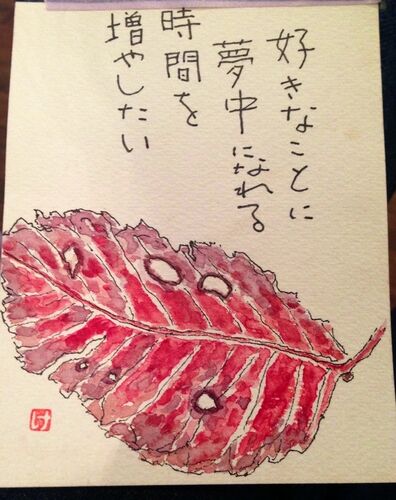 好きなことに
夢中になれる
時間を
増やしたい
け